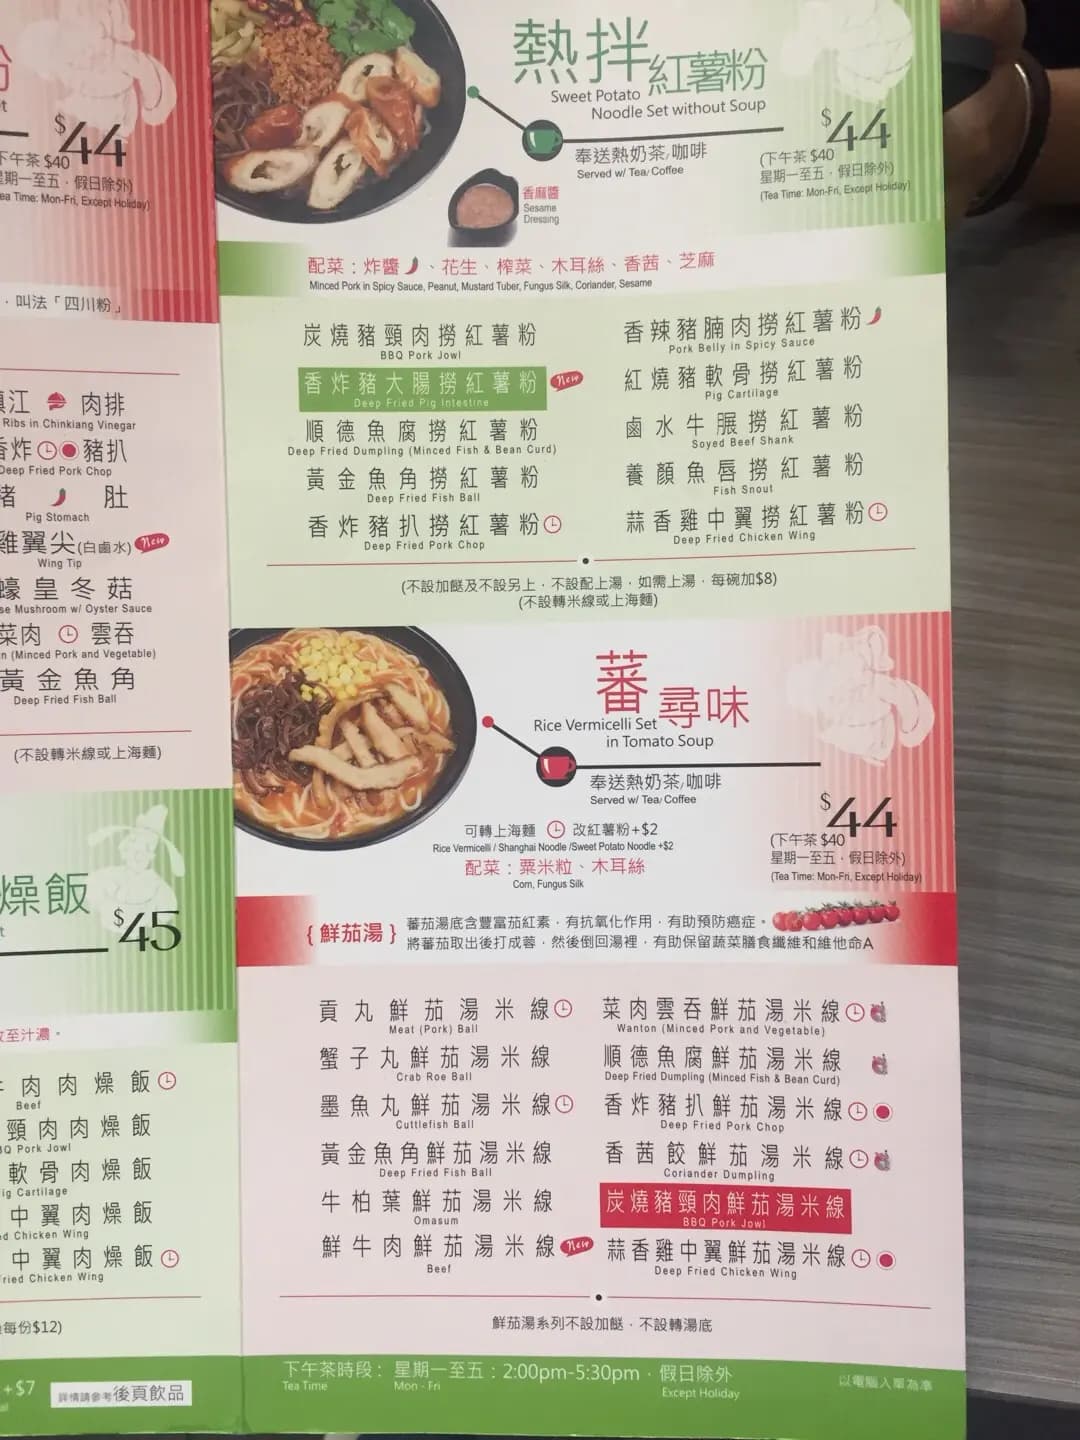 熱拌紅薯粉
Sweet Potato
Noodle Set without Soup
奉送熱奶茶/咖啡
Served w/ Tea/ Coffee
$44
(下午茶 $40
星期一至五．假日除外)
(Tea Time: Mon-Fri, Except Holiday)
香麻醬
Sesame
Dressing
配菜：炸醬、花生、榨菜、木耳絲、香茜、芝麻
Minced Pork in Spicy Sauce, Peanut, Mustard Tuber, Fungus Silk, Coriander, Sesame
炭燒豬頸肉撈紅薯粉
BBQ Pork Jowl
香炸豬大腸撈紅薯粉 New
Deep Fried Pig Intestine
順德魚腐撈紅薯粉
Deep Fried Dumpling (Minced Fish & Bean Curd)
黃金魚角撈紅薯粉
Deep Fried Fish Ball
香炸豬扒撈紅薯粉
Deep Fried Pork Chop
香辣豬腩肉撈紅薯粉
Pork Belly in Spicy Sauce
紅燒豬軟骨撈紅薯粉
Pig Cartilage
鹵水牛𦟌撈紅薯粉
Soyed Beef Shank
養顏魚唇撈紅薯粉
Fish Snout
蒜香雞中翼撈紅薯粉
Deep Fried Chicken Wing
(不設加餸及不設另上．不設配上湯．如需上湯．每碗加$8)
(不設轉米線或上海麵)
蕃尋味
Rice Vermicelli Set
in Tomato Soup
奉送熱奶茶/咖啡
Served w/ Tea/ Coffee
可轉上海麵 改紅薯粉+$2
Rice Vermicelli / Shanghai Noodle /Sweet Potato Noodle +$2
配菜：粟米粒、木耳絲
Corn, Fungus Silk
$44
(下午茶 $40
星期一至五．假日除外)
(Tea Time: Mon-Fri, Except Holiday)
{ 鮮茄湯 }
蕃茄湯底含豐富茄紅素．有抗氧化作用．有助預防癌症。
將蕃茄取出後打成蓉．然後倒回湯裡．有助保留蔬菜膳食纖維和維他命A
貢丸鮮茄湯米線
Meat (Pork) Ball
蟹子丸鮮茄湯米線
Crab Roe Ball
墨魚丸鮮茄湯米線
Cuttlefish Ball
黃金魚角鮮茄湯米線
Deep Fried Fish Ball
牛柏葉鮮茄湯米線
Omasum
鮮牛肉鮮茄湯米線 New
Beef
菜肉雲吞鮮茄湯米線
Wanton (Minced Pork and Vegetable)
順德魚腐鮮茄湯米線
Deep Fried Dumpling (Minced Fish & Bean Curd)
香炸豬扒鮮茄湯米線
Deep Fried Pork Chop
香茜餃鮮茄湯米線
Coriander Dumpling
炭燒豬頸肉鮮茄湯米線
BBQ Pork Jowl
蒜香雞中翼鮮茄湯米線
Deep Fried Chicken Wing
鮮茄湯系列不設加餸．不設轉湯底
下午茶時段：星期一至五：2:00pm-5:30pm．假日除外
Tea Time Mon - Fri Except Holiday
以電腦入單為準
$44
下午茶 $40
星期一至五．假日除外)
ea Time: Mon-Fri, Except Holiday)
．叫法「四川粉」
江 肉排
Ribs in Chinkiang Vinegar
香炸 豬扒
Deep Fried Pork Chop
豬 肚
Pig Stomach
雞翼尖(白鹵水) New
Wing Tip
蠔皇冬菇
se Mushroom w/ Oyster Sauce
菜肉 雲吞
n (Minced Pork and Vegetable)
黃金魚角
Deep Fried Fish Ball
(不設轉米線或上海麵)
燥飯
$45
至汁濃。
牛肉肉燥飯
Beef
頸肉肉燥飯
BQ Pork Jowl
軟骨肉燥飯
ig Cartilage
中翼肉燥飯
d Chicken Wing
中翼肉燥飯
Fried Chicken Wing
每份$12)
+$7
詳情請參考後頁飲品